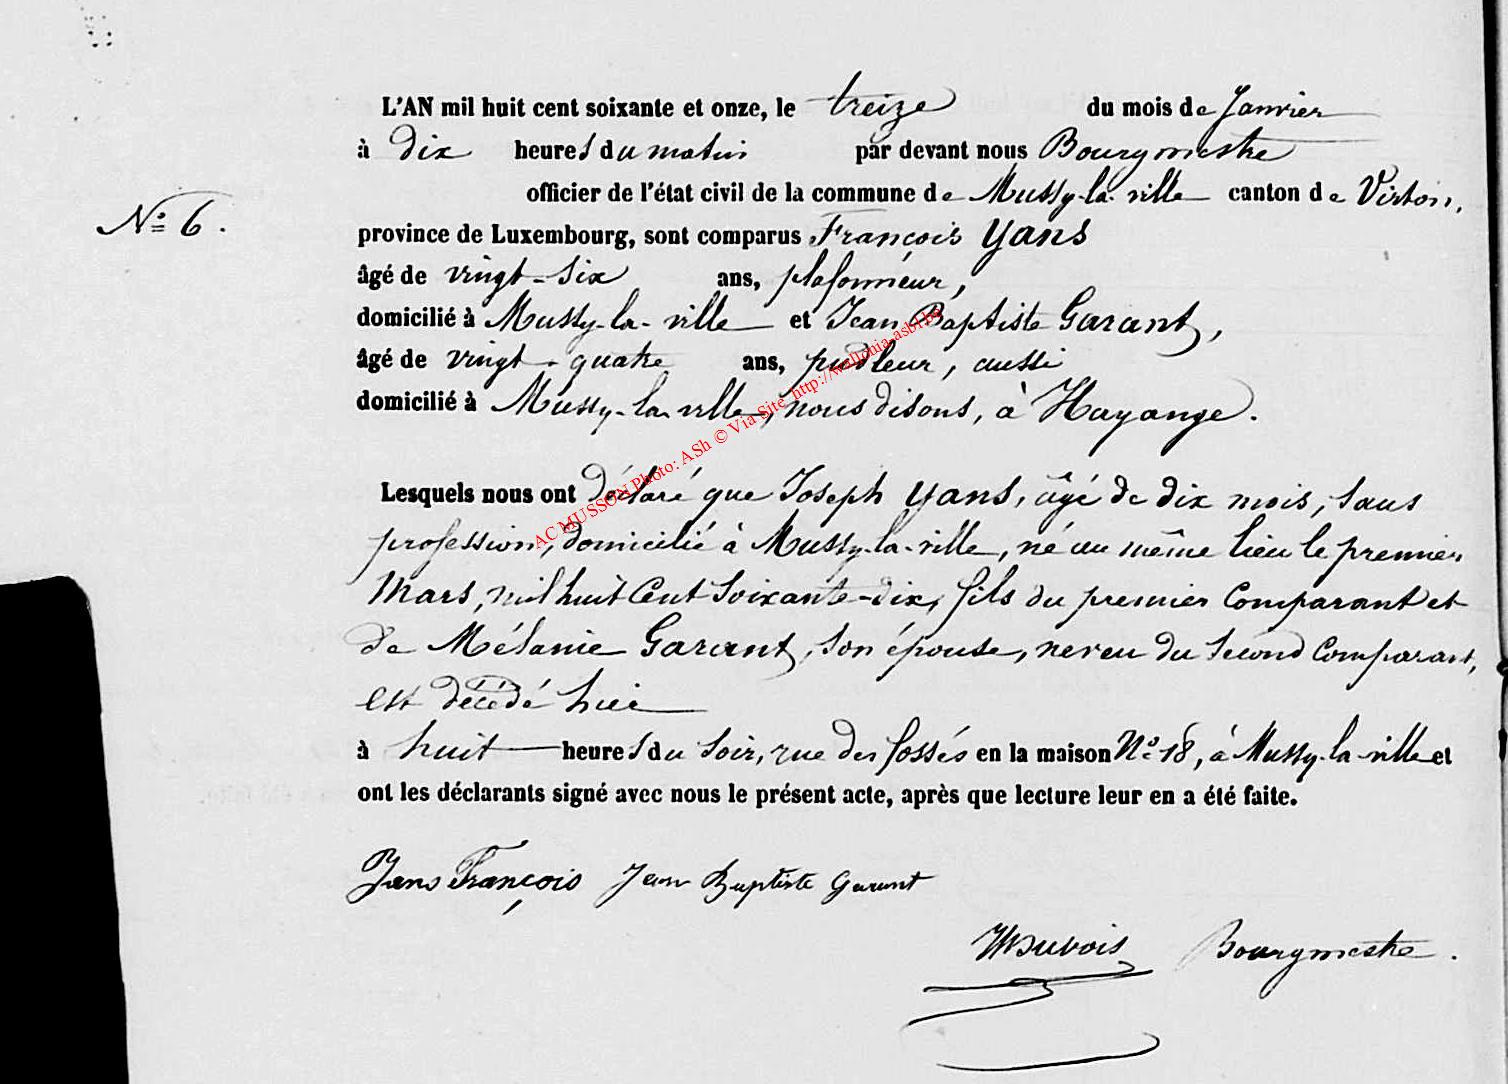 L'AN mil huit cent soixante et onze, le treize du mois de Janvier
à dix heures du matin par devant nous Bourgmestre
officier de l'état civil de la commune de Mussy-la-ville canton de Virton,
N° 6.
province de Luxembourg, sont comparus François Yans
âgé de vingt-six ans, plafonneur,
domicilié à Mussy-la-ville et Jean Baptiste Garant,
âgé de vingt-quatre ans, pudleur, aussi
domicilié à Mussy-la-ville, nous disons, à Hayange.
AC MUSSON Photo: ASh © Via Site http://wallonia-asbl.be
Lesquels nous ont déclaré que Joseph Yans, âgé de dix mois, sans
profession, domicilié à Mussy-la-ville, né au même lieu le premier
Mars, mil huit Cent Soixante-dix, fils du premier Comparant et
de Mélanie Garant, son épouse, neveu du second Comparant,
est décédé hier
à huit heures du soir, rue des fossés en la maison N° 18, à Mussy-la-ville et
ont les déclarants signé avec nous le présent acte, après que lecture leur en a été faite.
Yans François Jean Baptiste Garant
Dubois Bourgmestre.